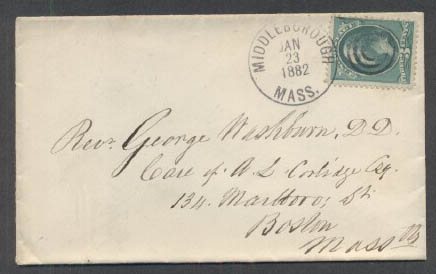 MIDDLEBOROUGH
JAN
23
1882
MASS.
Rev. George Washburn, D.D.
Care of A L Coolidge Esq.
134. Marlboro; St
Boston
Mass